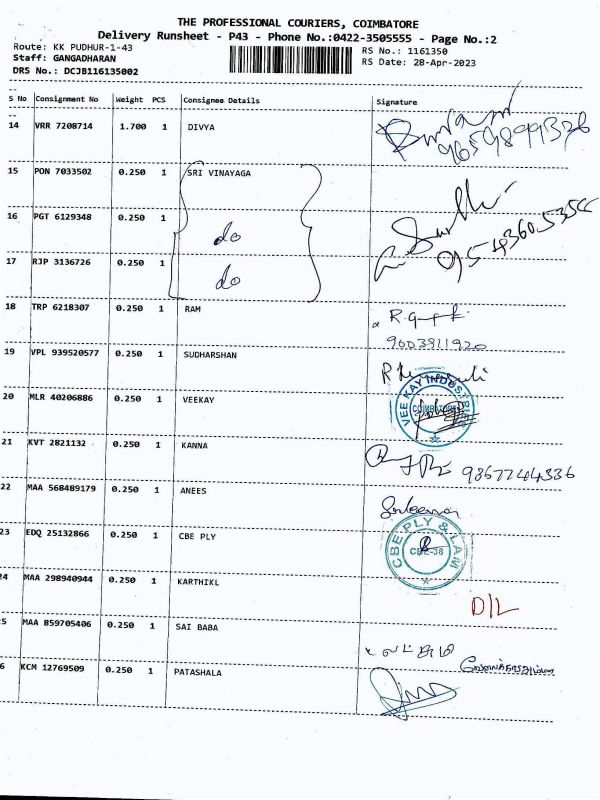 THE PROFESSIONAL COURIERS, COIMBATORE
Delivery Runsheet - P43 - Phone No.:0422-3505555 - Page No.:2
Route: KK PUDHUR-1-43 RS No.: 1161350
Staff: GANGADHARAN RS Date: 28-Apr-2023
DRS No.: DCJB116135002
S No Consignment No Weight PCS Consignee Details Signature
14 VRR 7208714 1.700 1 DIVYA
9659899326
15 PON 7033502 0.250 1 SRI VINAYAGA
16 PGT 6129348 0.250 1 do
17 RJP 3136726 0.250 1 do
18 TRP 6218307 0.250 1 RAM
9603911920
19 VPL 939520577 0.250 1 SUDHARSHAN
20 MLR 40206886 0.250 1 VEEKAY VEE KAY INDUSTRIES
21 KVT 2821132 0.250 1 KANNA 98677244336
22 MAA 568489179 0.250 1 ANEES
23 EDQ 25132866 0.250 1 CBE PLY CBE PLY & LAM CBE-38
24 MAA 298940944 0.250 1 KARTHIKL D/L
5 MAA 859705406 0.250 1 SAI BABA
6 KCM 12769509 0.250 1 PATASHALA